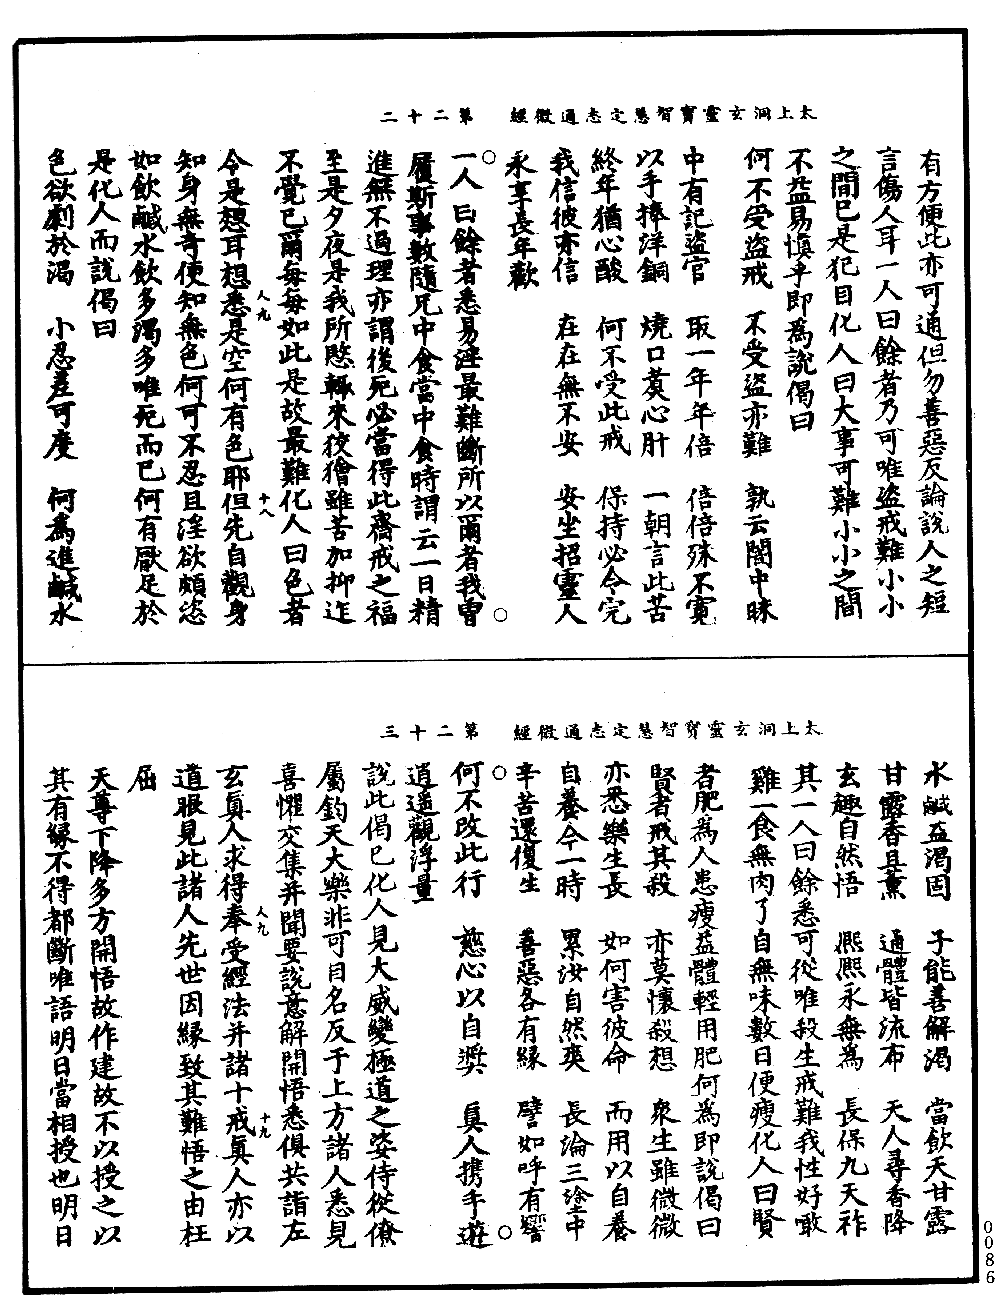 太上洞玄靈寶智慧定志通微經　第二十二
有方便此亦可通但勿善惡反論說人之短
言傷人耳一人曰餘者乃可唯盜戒難小小
之間已是犯目化人曰大事可難小小之間
不益易慎乎即為說偈曰
何不受盜戒　不受盜亦難　孰云闇中昧
中有記盜官　取一年年倍　倍倍殊不寬
以手捧洋銅　燒口爛心肝　一朝言此苦
終年猶心酸　何不受此戒　保持必令完
我信彼亦信　在在無不安　安坐招靈人
永享長年歡
一人曰餘者悉易淫最難斷所以爾者我曾
履斯事數隨兄中食當中食時謂云一日精
進無不過理亦謂後死必當得此齋戒之福
至是夕夜是我所愍輒來狡獪雖苦加抑迮
不覺已爾每每如此是故最難化人曰色者
今是想耳想悉是空何有色耶但先自觀身
知身無奇便知無色何可不忍且淫欲頗恣
如飲鹹水飲多渴多唯死而已何有厭足於
是化人而說偈曰
色欲劇於渴　小忍差可度　何為進鹹水
人九
十八
太上洞玄靈寶智慧定志通微經　第二十三
水鹹益渴因　子能善解渴　當飲天甘露
甘露香且薰　通體皆流布　天人尋香降
玄趣自然悟　熙熙永無為　長保九天祚
其一人曰餘悉可從唯殺生戒難我性好噉
雞一食無肉了自無味數日便瘦化人曰賢
者肥為人患瘦益體輕用肥何為即說偈曰
賢者戒其殺　亦莫懷殺想　眾生雖微微
亦悉樂生長　如何害彼命　而用以自養
自養今一時　累汝自然爽　長淪三塗中
辛苦還復生　善惡各有緣　譬如呼有響
何不改此行　慈心以自獎　真人攜手遊
逍遙觀浮量
說此偈已化人見大威變極道之姿侍從僚
屬鈞天大樂非可目名反于上方諸人悉見
喜懼交集并聞要說意解開悟悉俱共詣左
玄真人求得奉受經法并諸十戒真人亦以
道眼見此諸人先世因緣致其難悟之由枉
屈
天尊下降多方開悟故作建故不以授之以
其有緣不得都斷唯語明日當相授也明日
人九
十九
0086